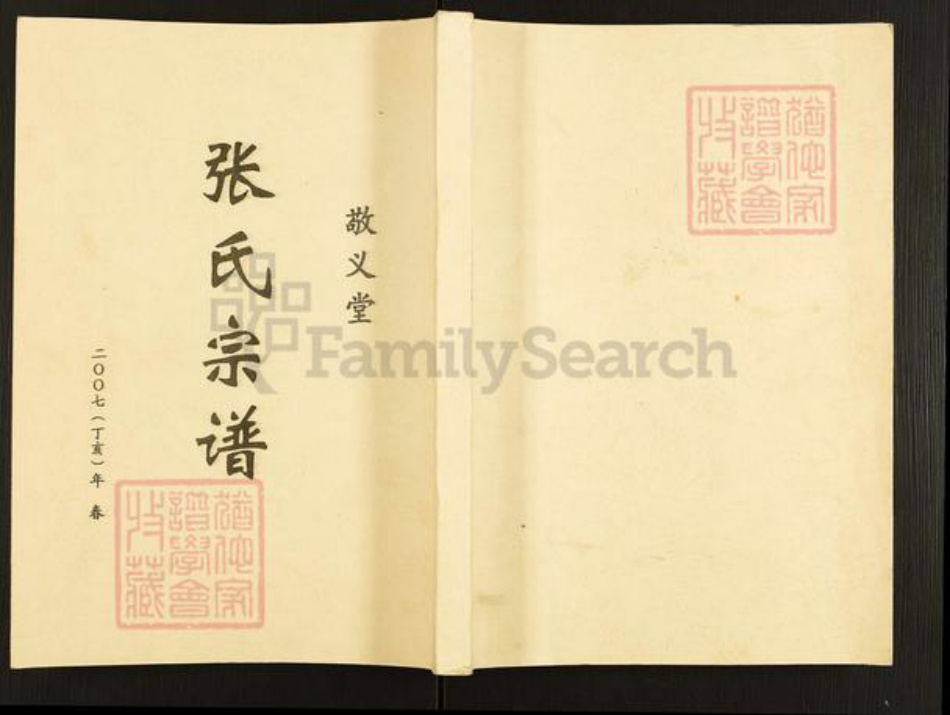 敬义堂
张氏宗谱
二〇〇七（丁亥）年 春
FamilySearch
猶他家
譜學會
收藏
猶他家
譜學會
收藏